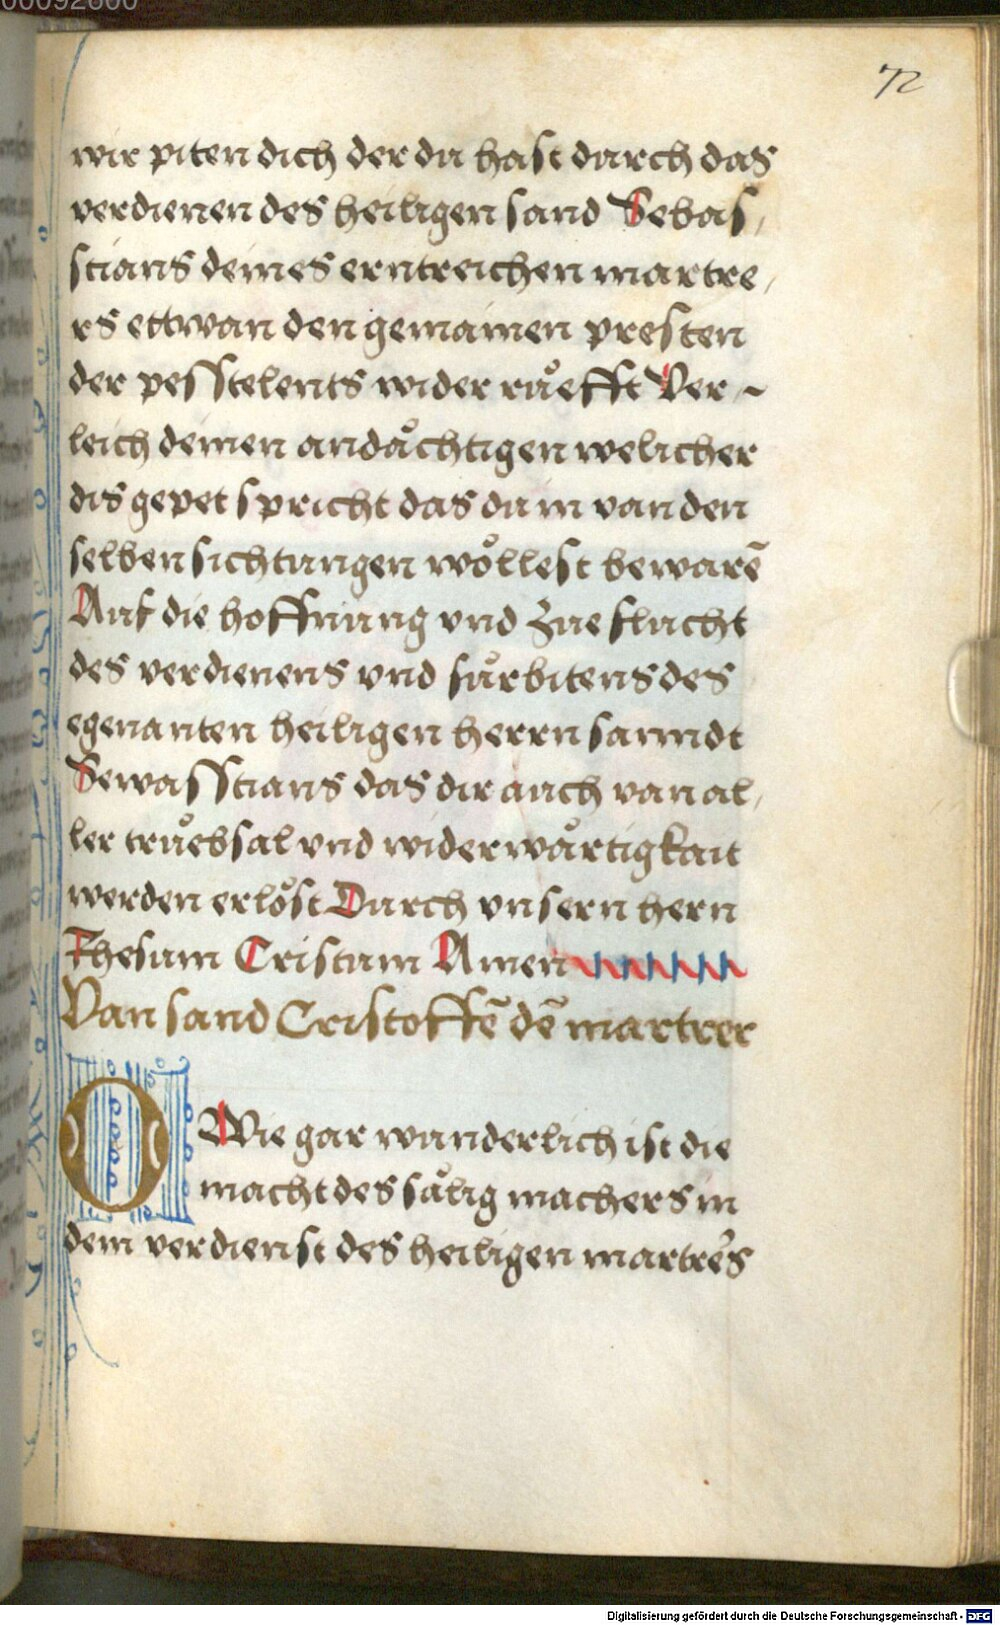 00092600
72
wir piten dich der du hast durch das
verdienen des heiligen sand Sebas,
stians deines erntreichen martre,
rs ettwan den gemainen presten
der pesstelents wider rüefft Ver ~
leich deinen andåchtigen welicher
dis gepet spricht das du in van den
selben sichtungen wöllest bewarē
Auf die hoffnung vnd Zue flucht
des verdienens vnd fürbitens des
egenanten heiligen herrn sanndt
Sewasstians das dir auch van al,
ler trüebsal vnd widerwårtigkait
werden erlöst Durch vnsern hern
Jhesum Cristum Amen
Van sand Cristoffē dē martrer
O Wie gar wunderlich ist die
macht des sålig machers in
dem verdienst des heiligen martrers
Digitalisierung gefördert durch die Deutsche Forschungsgemeinschaft - DFG